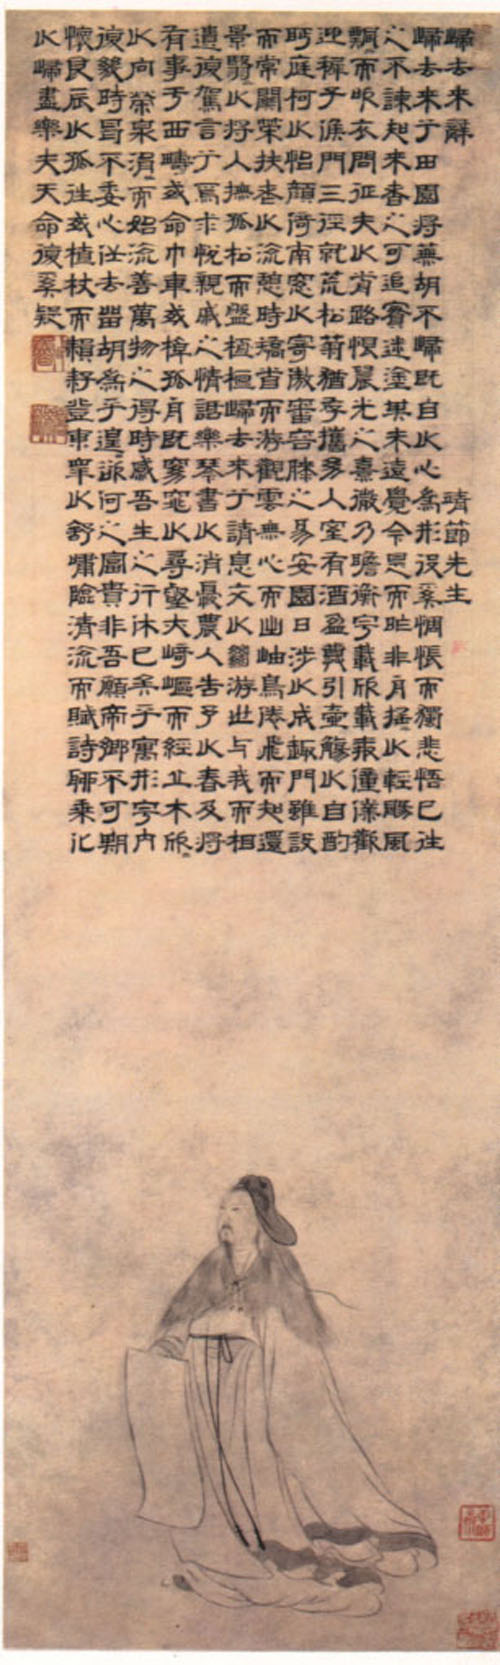 歸去来辭　靖節先生
歸去来兮田園將蕪胡不歸既自以心為形役奚惆悵而獨悲悟已往
之不諫知来者之可追實迷塗其未遠覺今是而昨非舟揺=以輕颺風
飄=而吹衣問征夫以前路恨晨光之熹微乃瞻衡宇載欣載奔僮僕歡
迎稚子候門三徑就荒松菊猶存攜幼入室有酒盈樽引壺觴以自酌
眄庭柯以怡顏倚南窓以寄傲審容膝之易安園日涉以成趣門雖設
而常關策扶老以流憩時矯首而游觀雲無心而出岫鳥倦飛而知還
景翳=以將入撫孤松而盤桓歸去来兮請息交以絕游世与我而相
遺復駕言兮焉求悅親戚之情話樂琴書以消憂農人告予以春及將
有事于西疇或命巾車或棹孤舟既窈窕以尋壑亦崎嶇而經丘木欣=
以向榮泉涓=而始流善萬物之得時感吾生之行休已矣乎寓形宇内
復幾時曷不委心任去留胡為乎遑=欲何之富貴非吾願帝鄉不可期
懷良辰以孤往或植杖而耘耔登東皋以舒嘯臨清流而賦詩聊乘化
以歸盡樂夫天命復奚疑